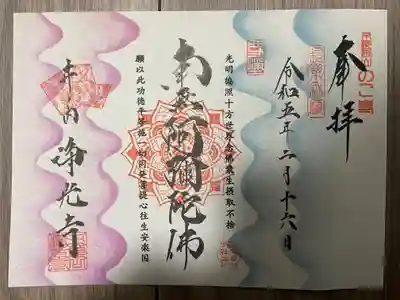 奉拝
令和五年二月十六日
光明徧照十方世界念佛衆生摂取不捨
南無阿彌陀佛
願以此功徳平等施一切同発菩提心往生安楽国
淨光寺